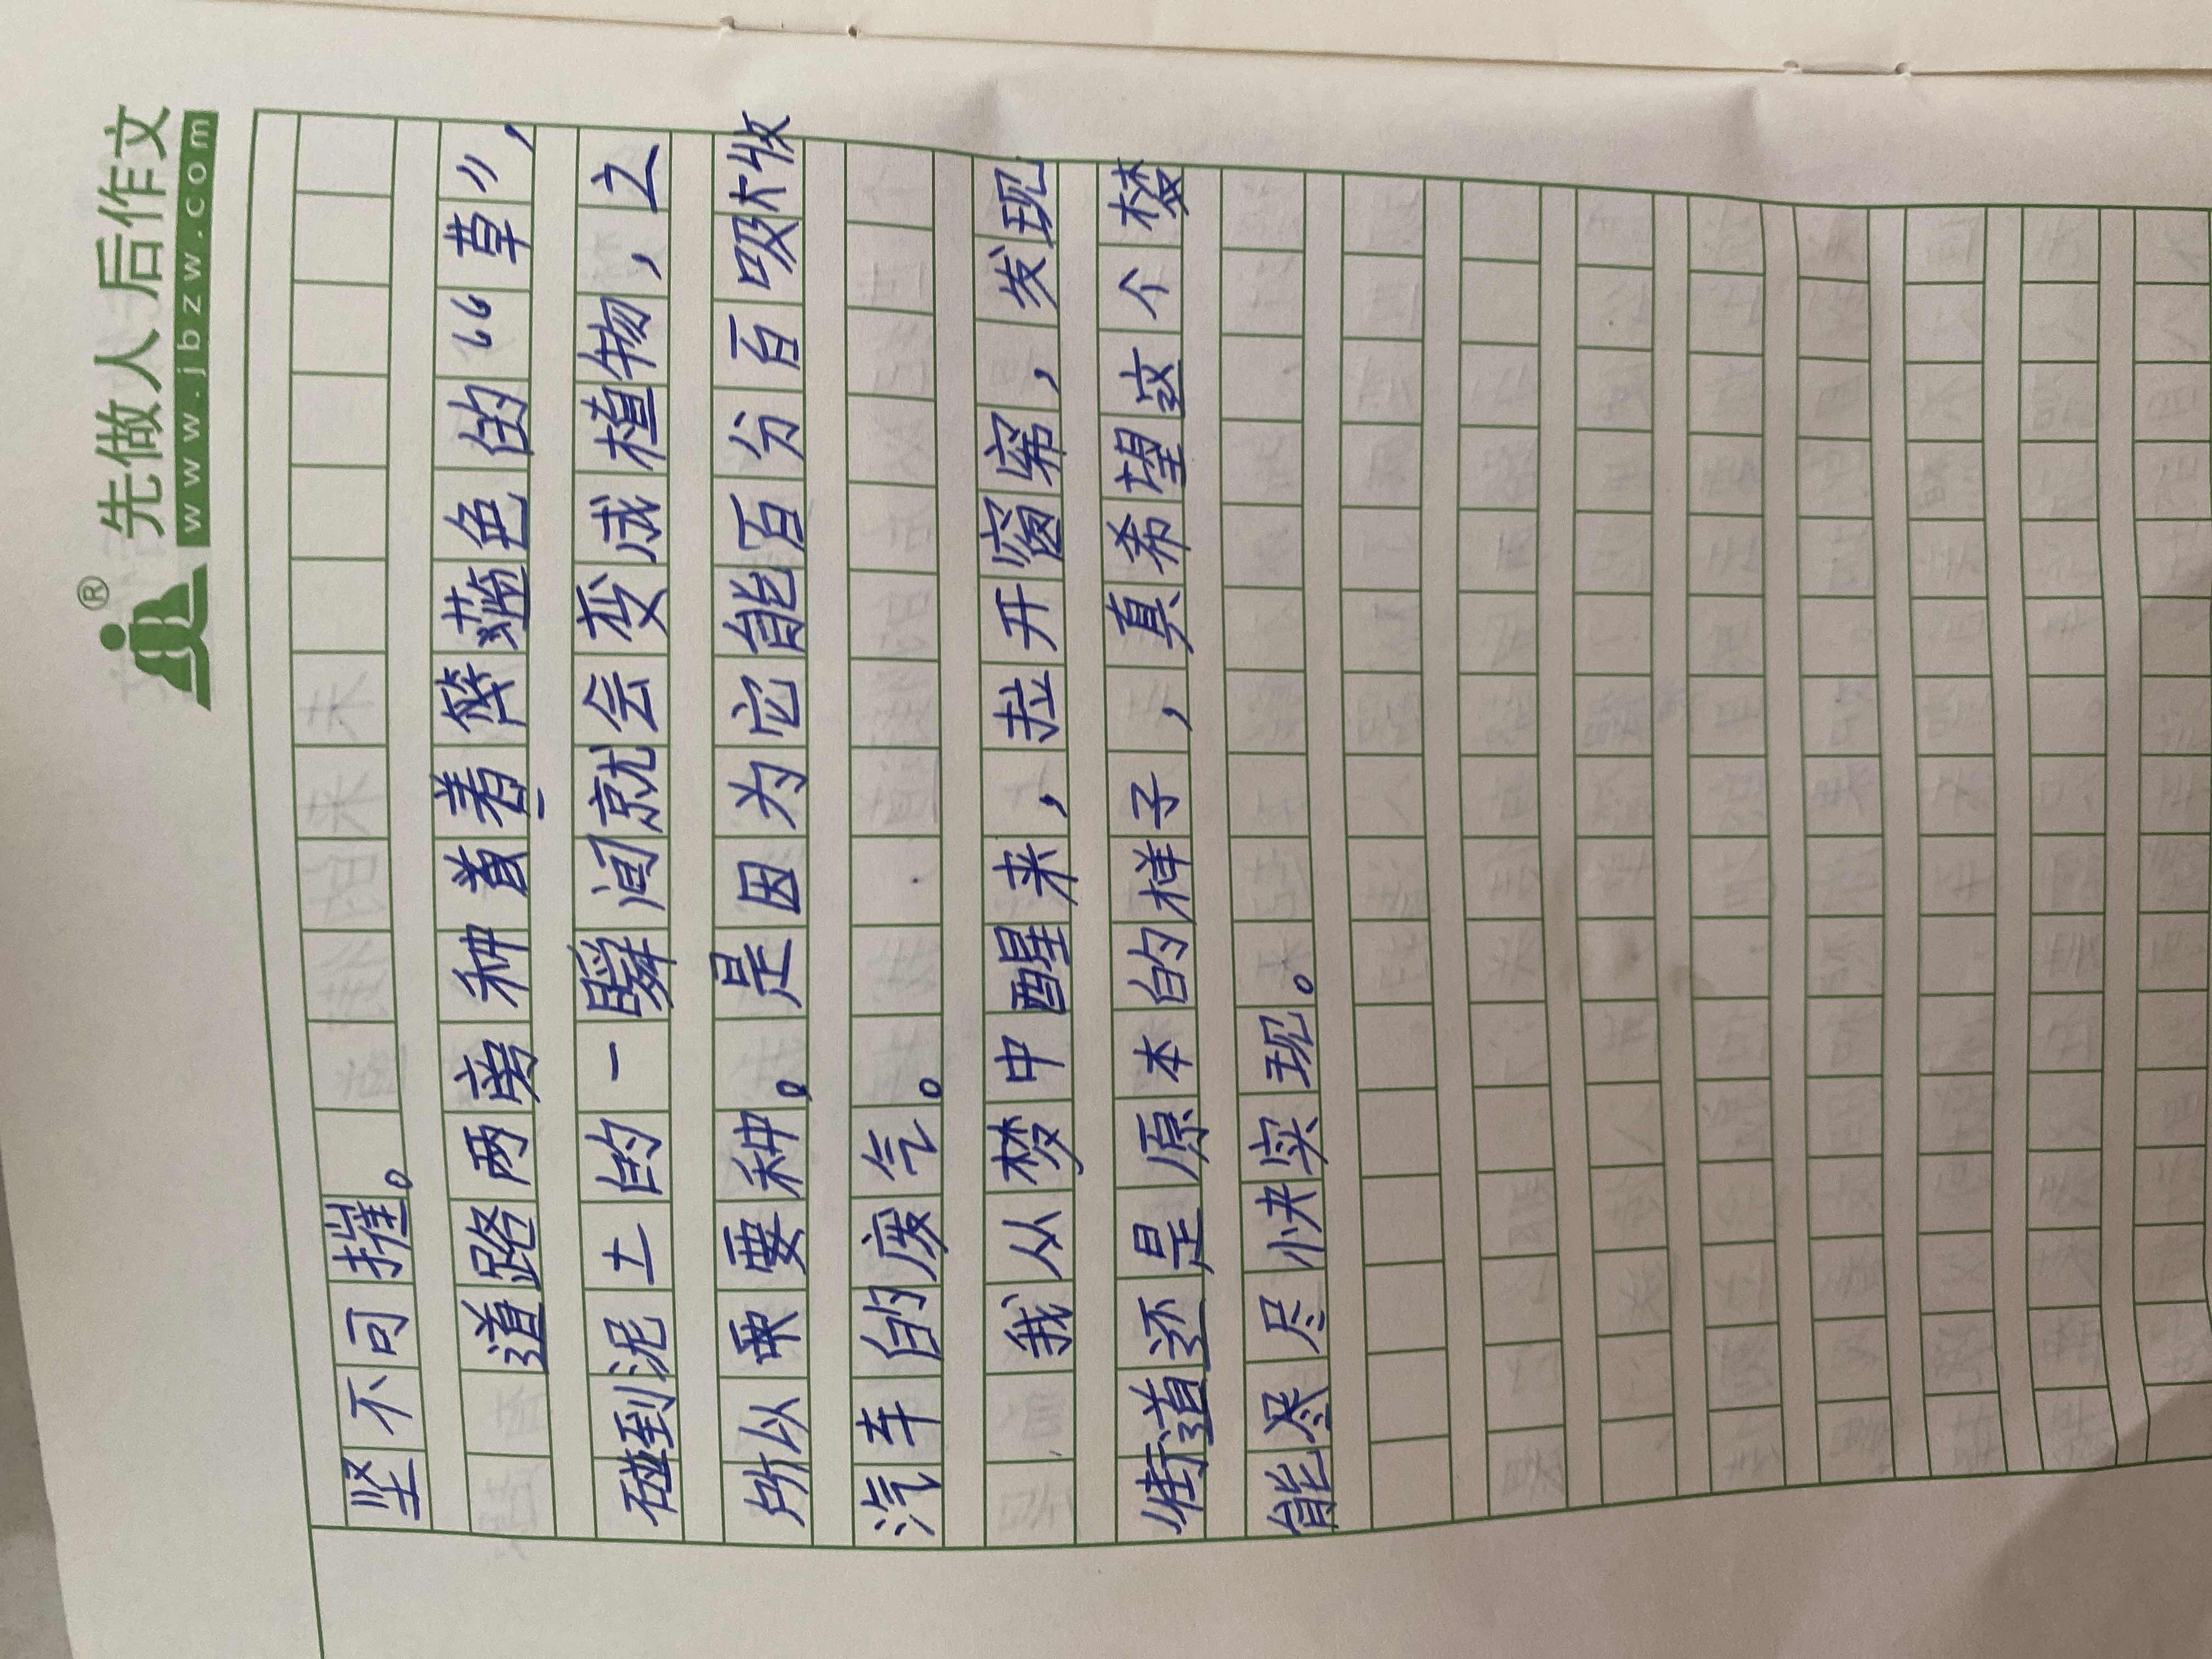 先做人后作文
www.jbzw.com
坚不可摧。
道路两旁种着着 萍藻色的“草”，
碰到泥土的一瞬间就会变成植物，之
所以要要种。是因为它能百分百吸收
汽车的废气。
我从梦中醒来，拉开窗帘，发现
街道还是原本的样子，真希望这个梦
能尽尽快实现。